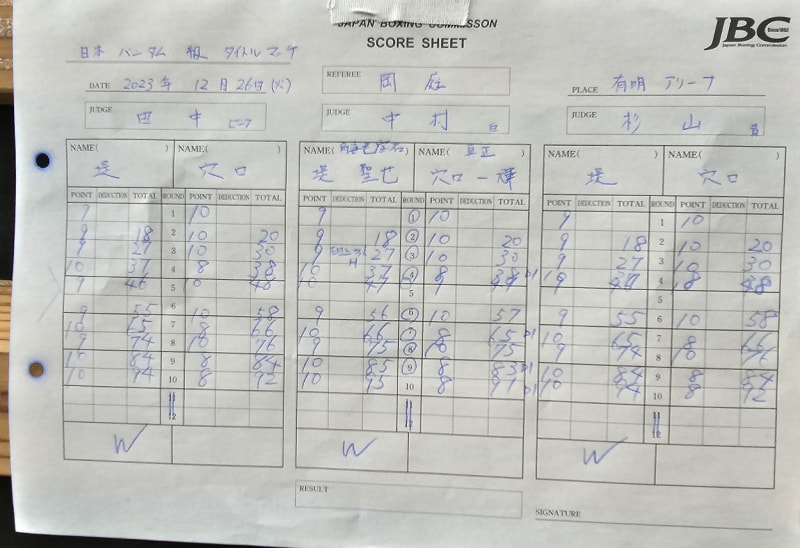 JAPAN BOXING COMMISSON
SCORE SHEET
JBC Since1952
Japan Boxing Commission
日本 バンタム 級 タイトルマッチ
DATE 2023年 12月26日(火)
REFEREE 岡庭
PLACE 有明 アリーナ
JUDGE 田中
JUDGE 中村 白
JUDGE 杉山
NAME( ) NAME( ) NAME( ) NAME( 真正 ) NAME( ) NAME( )
堤 穴口 堤 聖也 穴口 一輝 堤 穴口
POINT DEDUCTION TOTAL ROUND POINT DEDUCTION TOTAL POINT DEDUCTION TOTAL ROUND POINT DEDUCTION TOTAL POINT DEDUCTION TOTAL ROUND POINT DEDUCTION TOTAL
9 1 10 9 1 10 9 1 10
9 18 2 10 20 9 18 2 10 20 9 18 2 10 20
9 27 3 10 30 9 27 3 10 30 9 27 3 10 30
10 37 4 8 38 10 37 4 8 38 10 37 4 8 38
9 46 5 10 48 5 5
9 55 6 10 58 9 56 6 10 57 9 55 6 10 58
10 65 7 8 66 10 66 7 8 65 10 65 7 8 66
9 74 8 10 76 9 75 8 10 75 9 74 8 10 76
10 84 9 8 84 10 85 9 8 83 10 84 9 8 84
10 94 10 8 92 10 95 10 8 91 10 94 10 8 92
W W W
RESULT
SIGNATURE